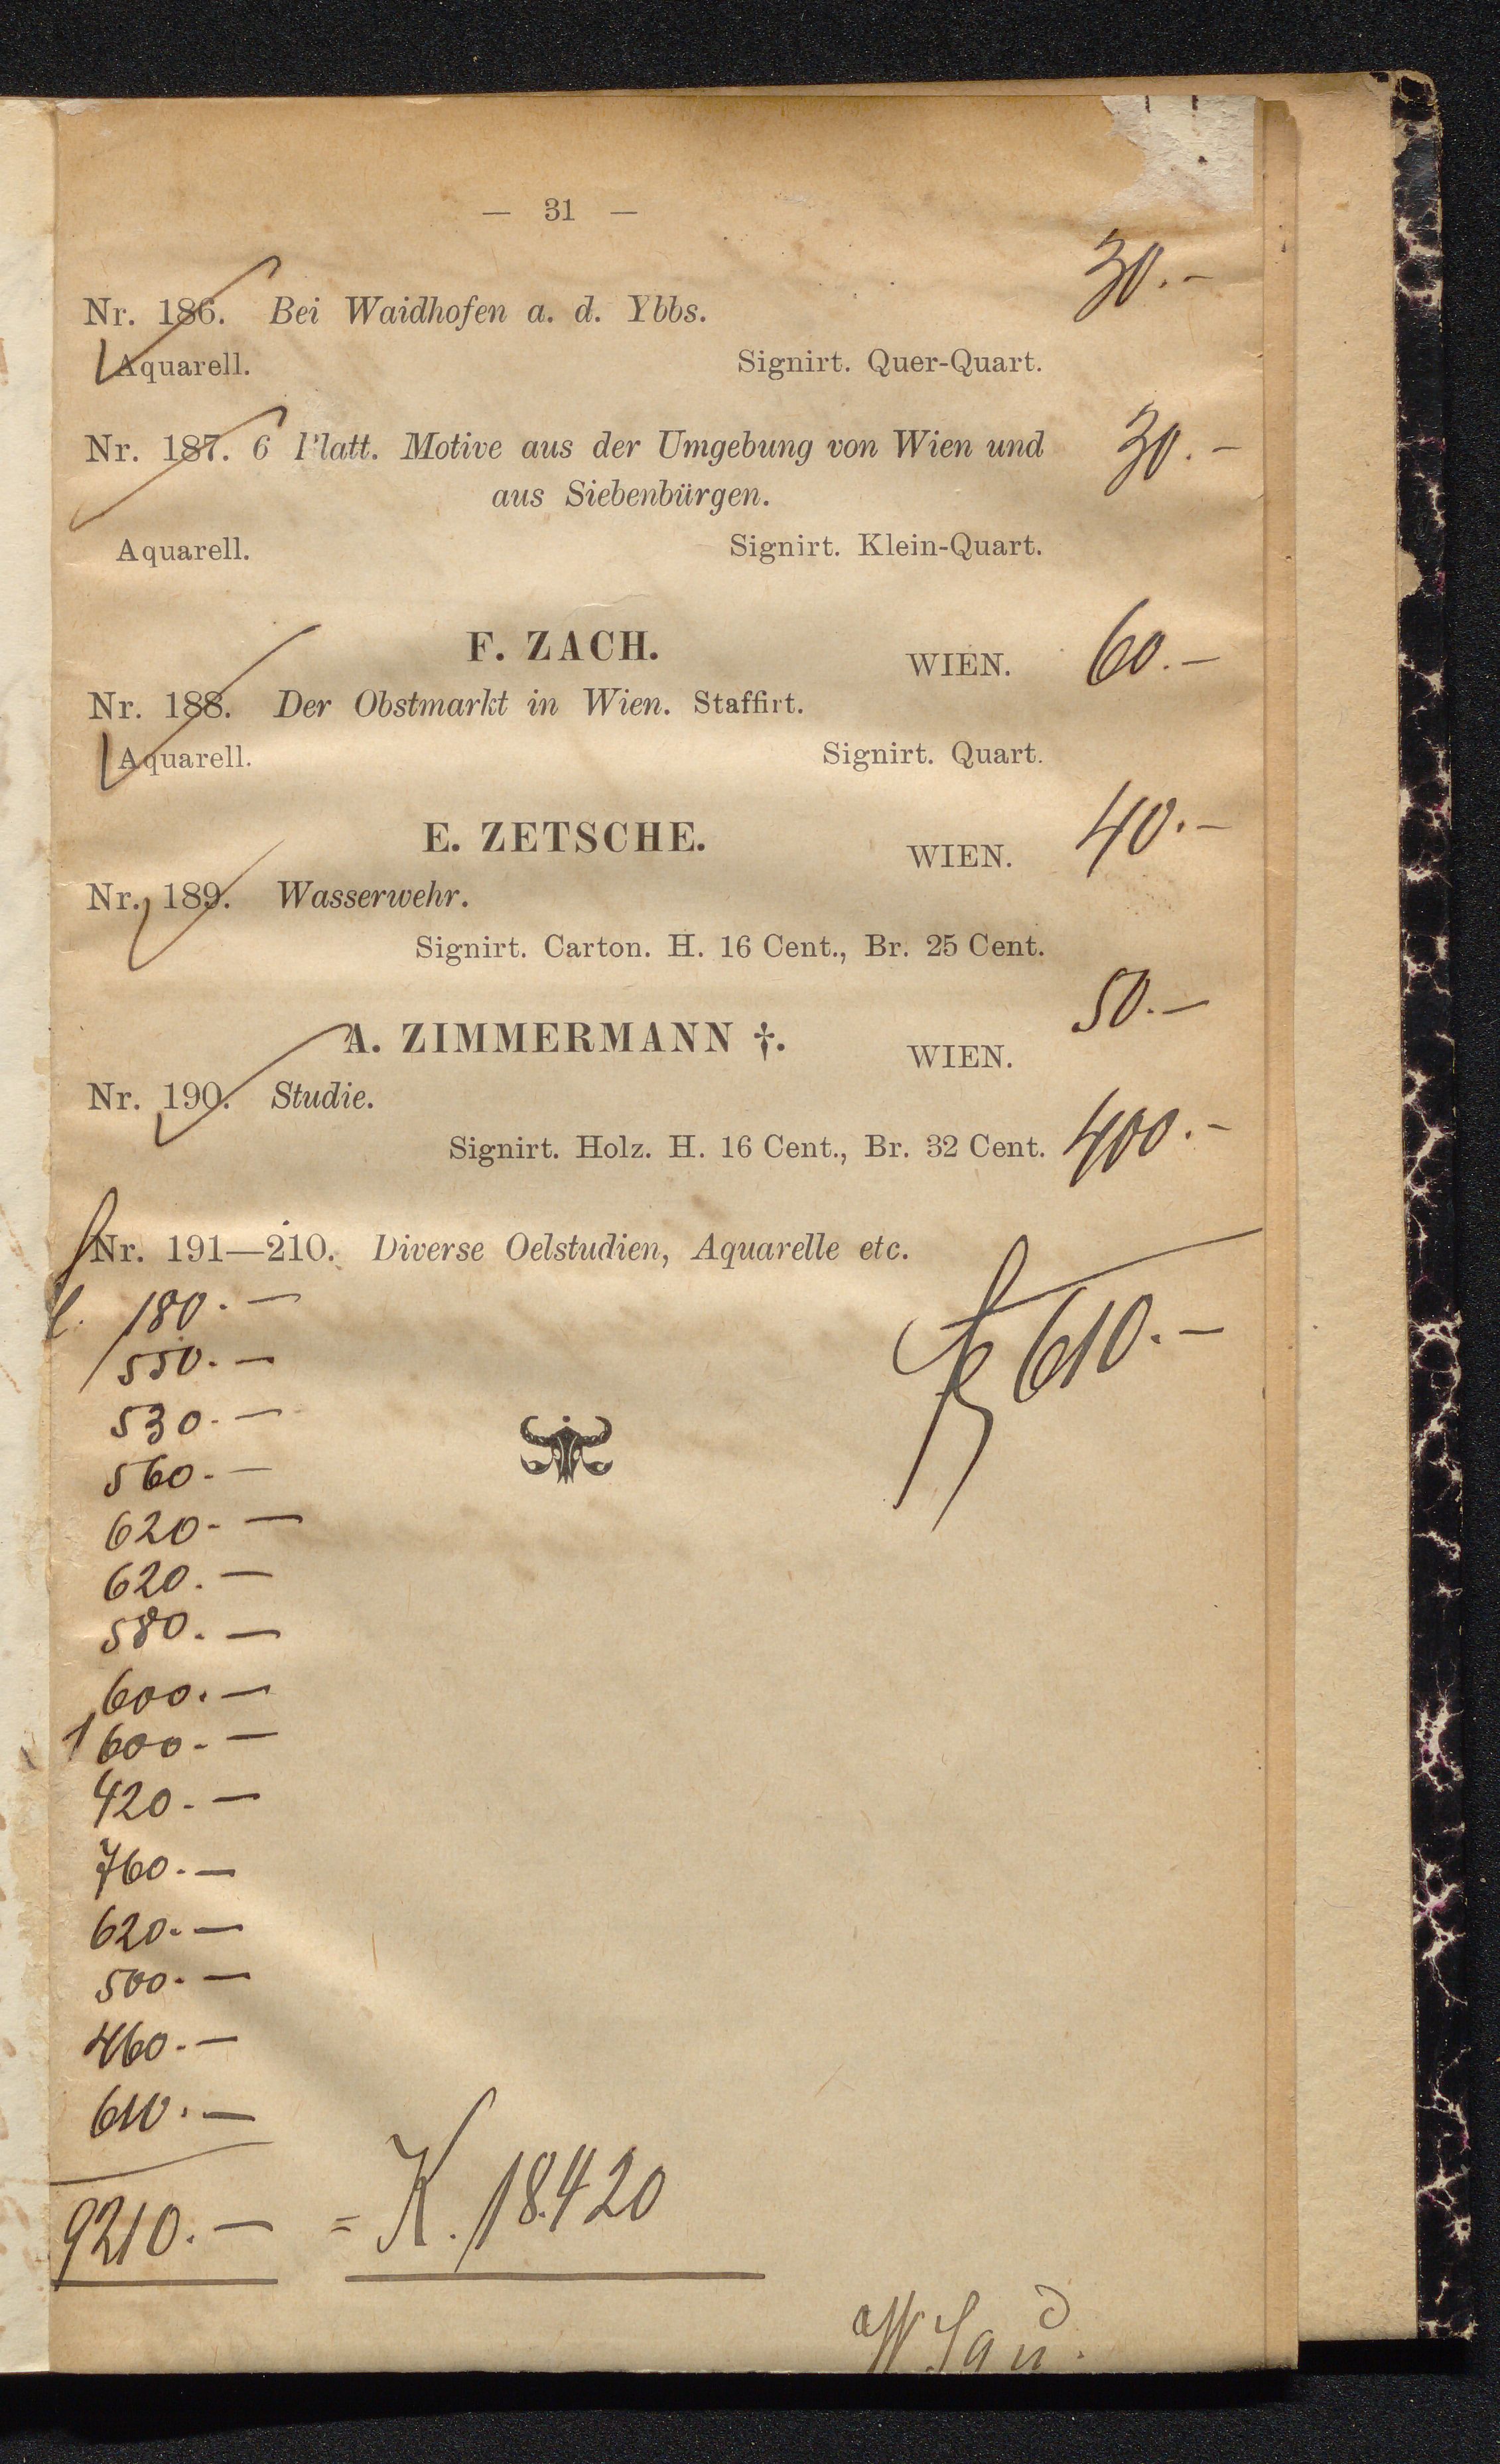 — 31 —
30.—
Nr. 186. Bei Waidhofen a. d. Ybbs.
Aquarell. Signirt. Quer-Quart.
Nr. 187. 6 Blatt. Motive aus der Umgebung von Wien und 30.—
aus Siebenbürgen.
Aquarell. Signirt. Klein-Quart.
F. ZACH. WIEN. 60.—
Nr. 188. Der Obstmarkt in Wien. Staffirt.
Aquarell. Signirt. Quart.
E. ZETSCHE. WIEN. 40.—
Nr. 189. Wasserwehr.
Signirt. Carton. H. 16 Cent., Br. 25 Cent.
50.—
A. ZIMMERMANN †. WIEN.
Nr. 190. Studie.
Signirt. Holz. H. 16 Cent., Br. 32 Cent. 400.—
Nr. 191—210. Diverse Oelstudien, Aquarelle etc.
180.—
610.—
550.—
530.—
560.—
620.—
620.—
580.—
600.—
1600.—
420.—
760.—
620.—
500.—
460.—
610.—
9210.— = K. 18.420